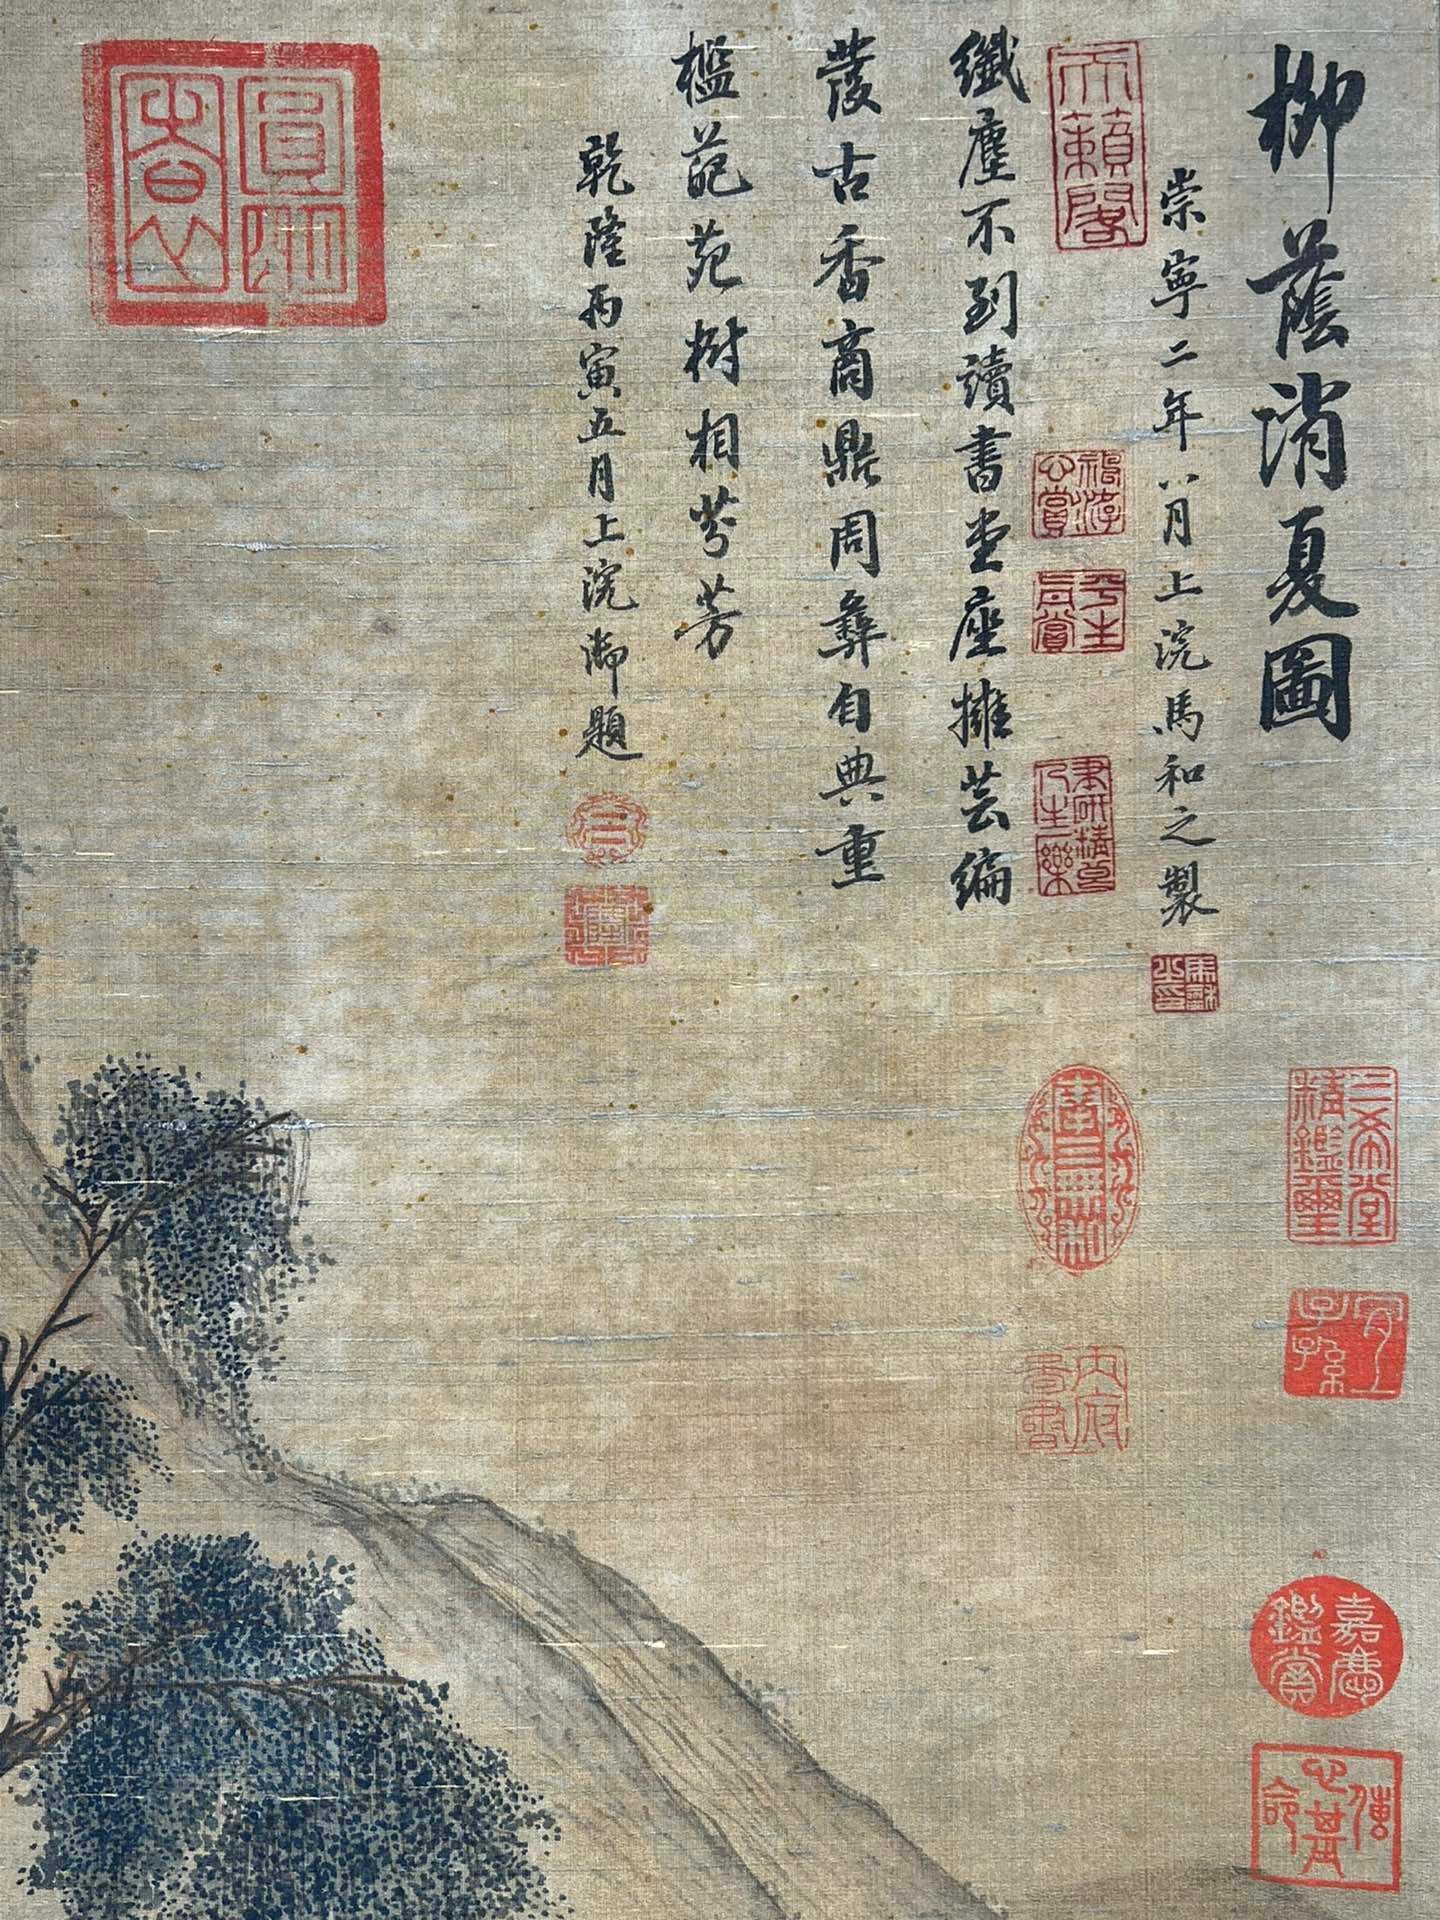 柳蔭消夏圖
崇寧二年八月上浣馬和之製
纖塵不到讀書堂座擁芸編
發古香商鼎周彝自典重
檻葩苑樹相芬芳
乾隆丙寅五月上浣御題
天籟閣
平生真賞
三希堂精鑑璽
宜子孫
嘉慶鑑賞
乾隆